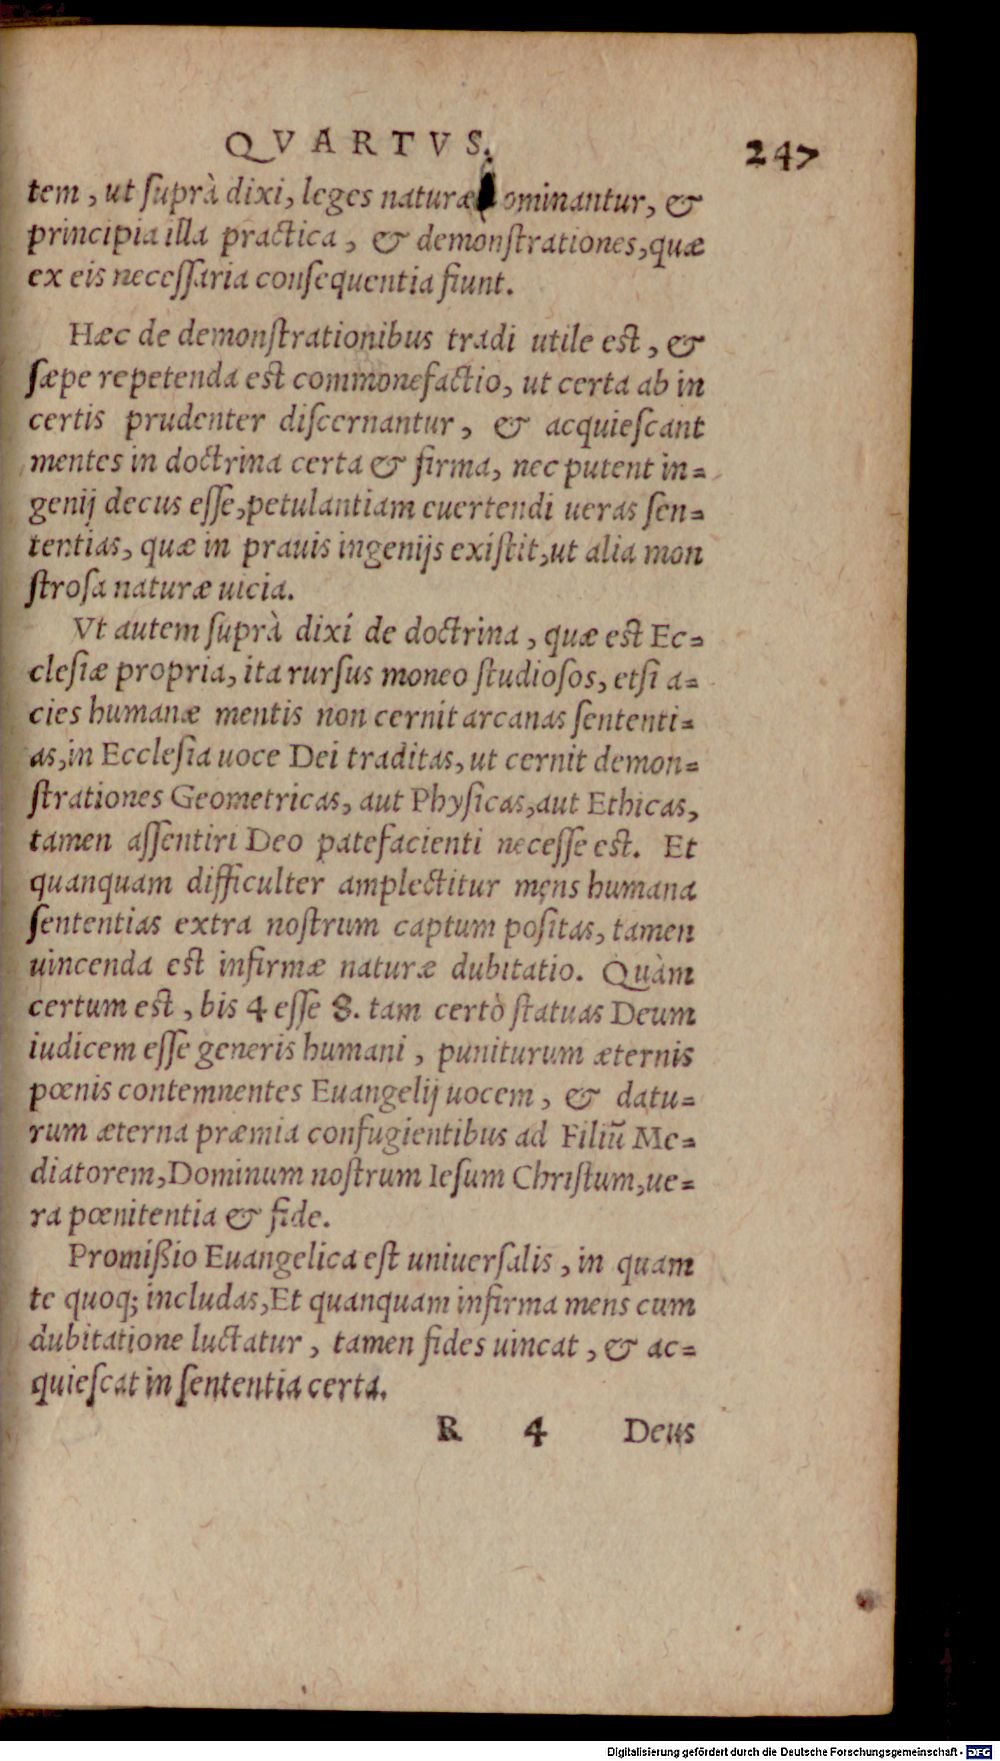 QVARTVS. 247
tem, ut ſuprà dixi, leges naturæ ominantur, &
principia illa practica, & demonſtrationes, quæ
ex eis neceſſaria conſequentia fiunt.
Hæc de demonſtrationibus tradi utile est, &
ſæpe repetenda est commonefactio, ut certa ab in
certis prudenter diſcernantur, & acquieſcant
mentes in doctrina certa & firma, nec putent in-
genij decus eſſe, petulantiam euertendi ueras ſen-
tentias, quæ in prauis ingenijs exiſtit, ut alia mon
ſtroſa naturæ uicia.
Vt autem ſuprà dixi de doctrina, quæ est Ec-
cleſiæ propria, ita rurſus moneo ſtudioſos, etſi a-
cies humanæ mentis non cernit arcanas ſententi-
as, in Eccleſia uoce Dei traditas, ut cernit demon-
ſtrationes Geometricas, aut Phyſicas, aut Ethicas,
tamen aſſentiri Deo patefacienti neceſſe est. Et
quanquam difficulter amplectitur mens humana
ſententias extra noſtrum captum poſitas, tamen
uincenda est infirmæ naturæ dubitatio. Quàm
certum est, bis 4 eſſe 8. tam certò ſtatuas Deum
iudicem eſſe generis humani, puniturum æternis
pœnis contemnentes Euangelij uocem, & datu-
rum æterna præmia confugientibus ad Filiũ Me-
diatorem, Dominum noſtrum Ieſum Chriſtum, ue-
ra pœnitentia & fide.
Promißio Euangelica eſt uniuerſalis, in quam
te quoq; includas, Et quanquam infirma mens cum
dubitatione luctatur, tamen fides uincat, & ac-
quieſcat in ſententia certa.
R 4 Deus
Digitalisierung gefördert durch die Deutsche Forschungsgemeinschaft - DFG